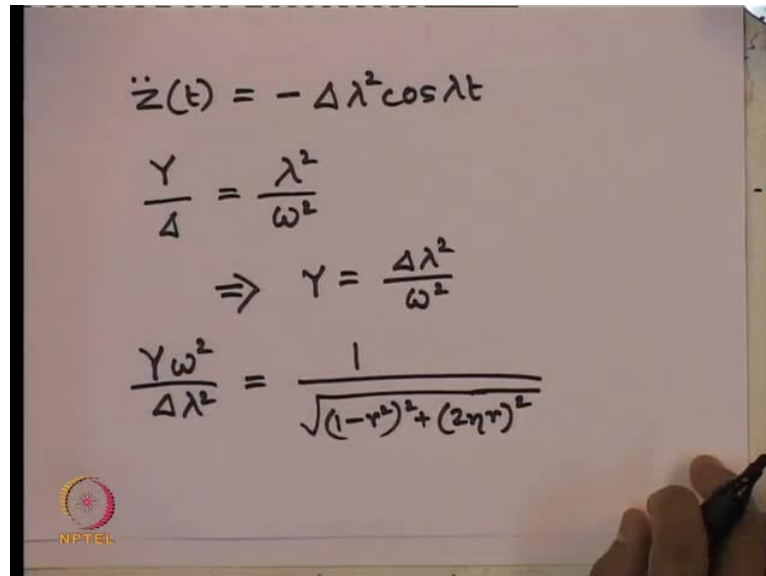 z̈(t) = - Δλ² cos λt
Y/Δ = λ²/ω²
⇒ Y = Δλ²/ω²
Yω²/Δλ² = 1/√((1-r²)² + (2ηr)²)
NPTEL